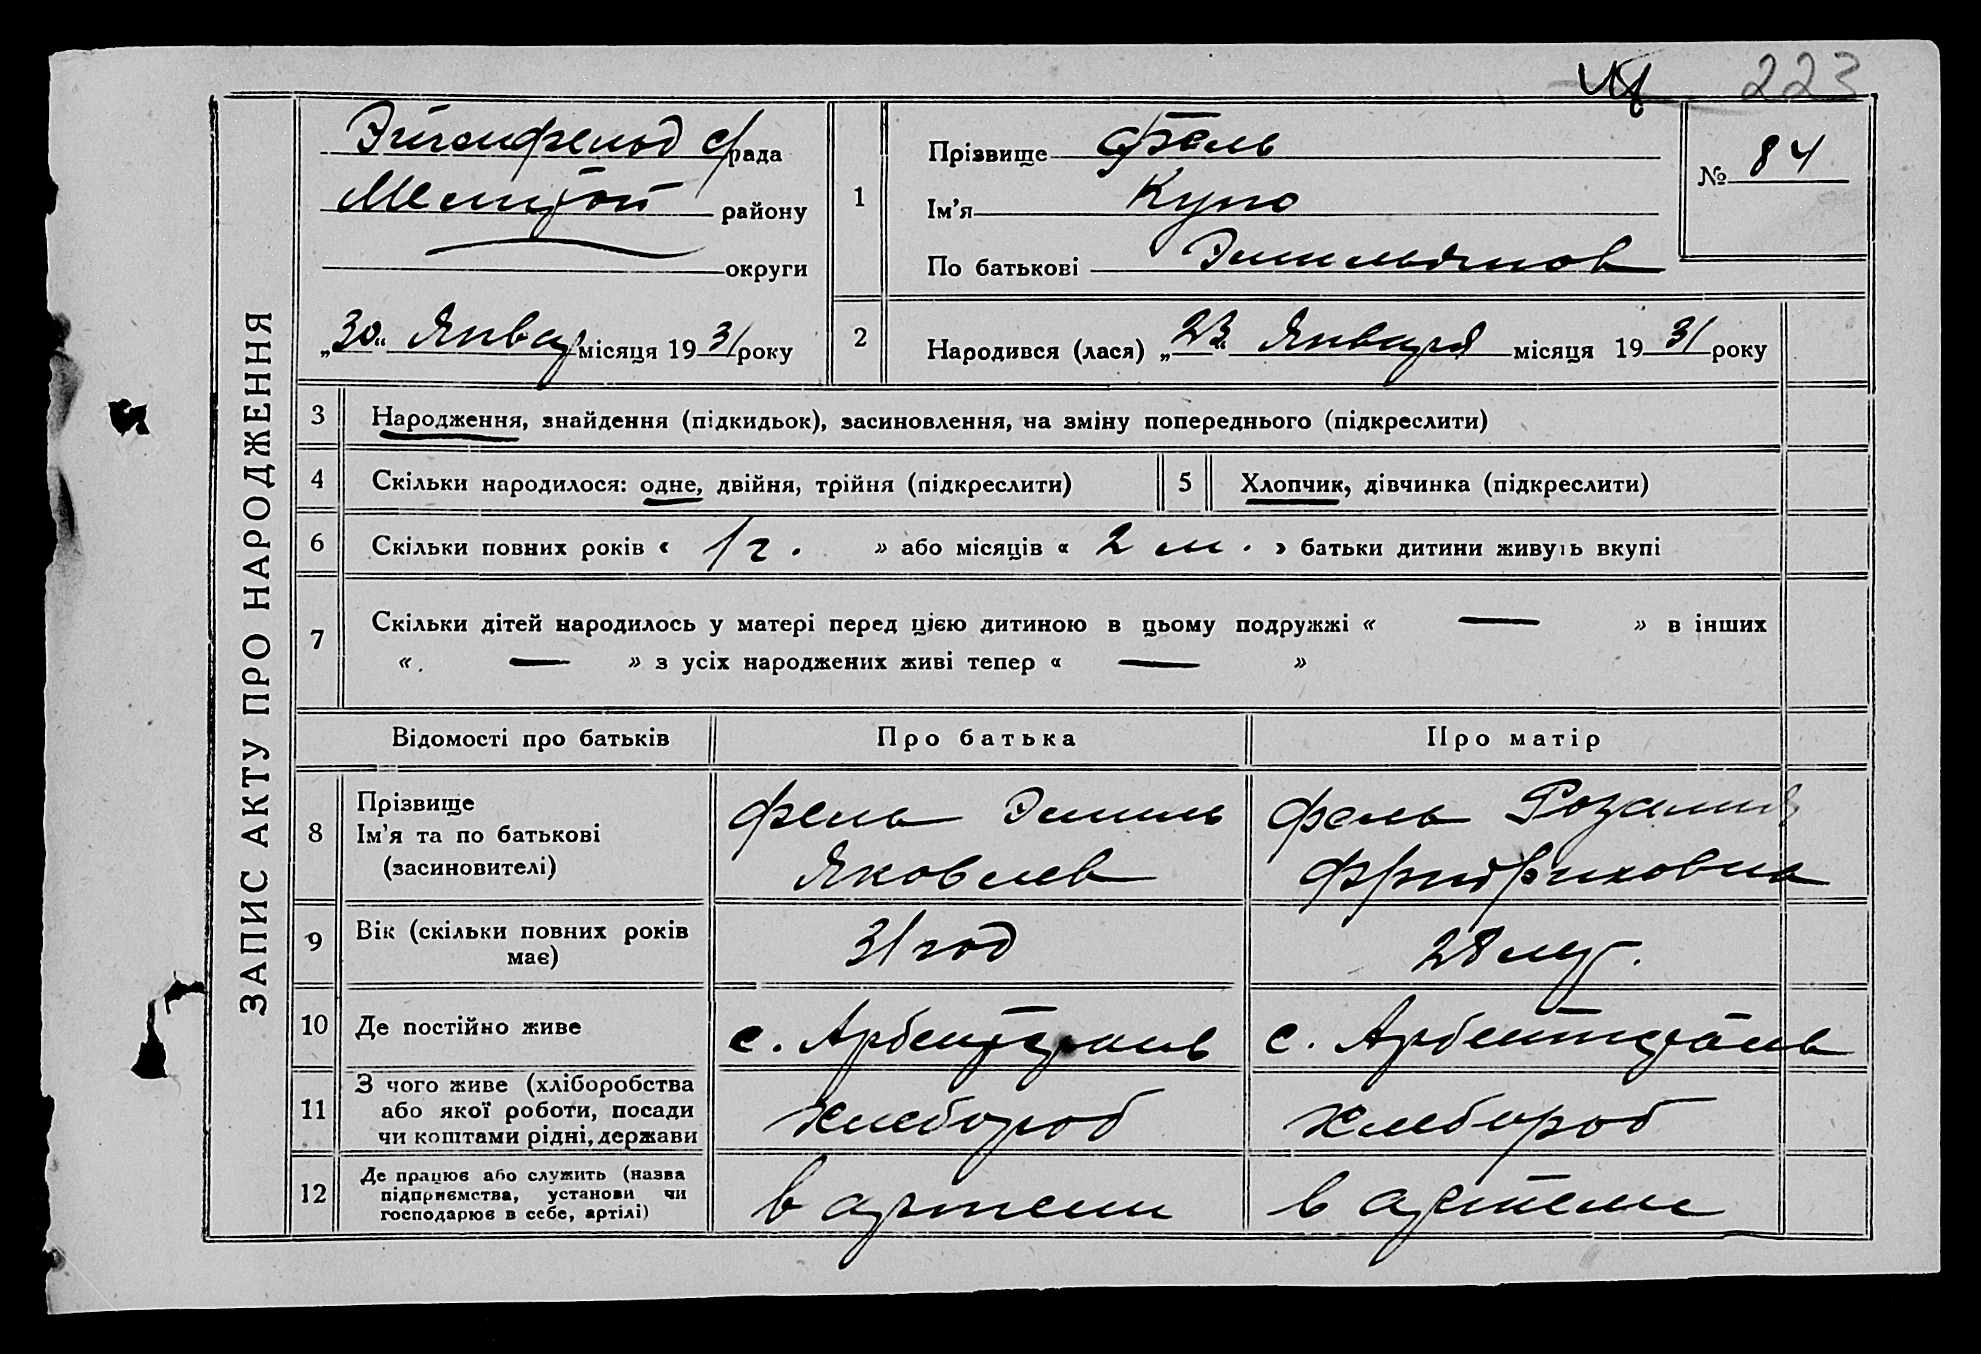 223
ЗАПИС АКТУ ПРО НАРОДЖЕННЯ
Эйгенфельд с/рада
Мелитоп району
округи
„30“ Январ місяця 1931 року
1
Прізвище Фель
Ім’я Куно
По батькові Эмильянов
№ 84
2
Народився (лася) „23“ Января місяця 1931 року
3 Народження, знайдення (підкидьок), засиновлення, на зміну попереднього (підкреслити)
4 Скільки народилося: одне, двійня, трійня (підкреслити) 5 Хлопчик, дівчинка (підкреслити)
6 Скільки повних років « 1 г. » або місяців « 2 м. » батьки дитини живуть вкупі
7 Скільки дітей народилось у матері перед цією дитиною в цьому подружжі « — » в інших
« — » з усіх народжених живі тепер « — »
Відомості про батьків Про батька Про матір
8 Прізвище
Ім’я та по батькові
(засиновителі)
Фель Эмиль
Яковлев
Фель Розалия
Фридриховна
9 Вік (скільки повних років
має)
31 год 28 лет.
10 Де постійно живе с. Арбейтгейм с. Арбейтгейм
11 З чого живе (хліборобства
або якої роботи, посади
чи коштами рідні, держави
хлебороб хлебороб
12 Де працює або служить (назва
підприємства, установи чи
господарює в себе, артілі)
в артели в артели